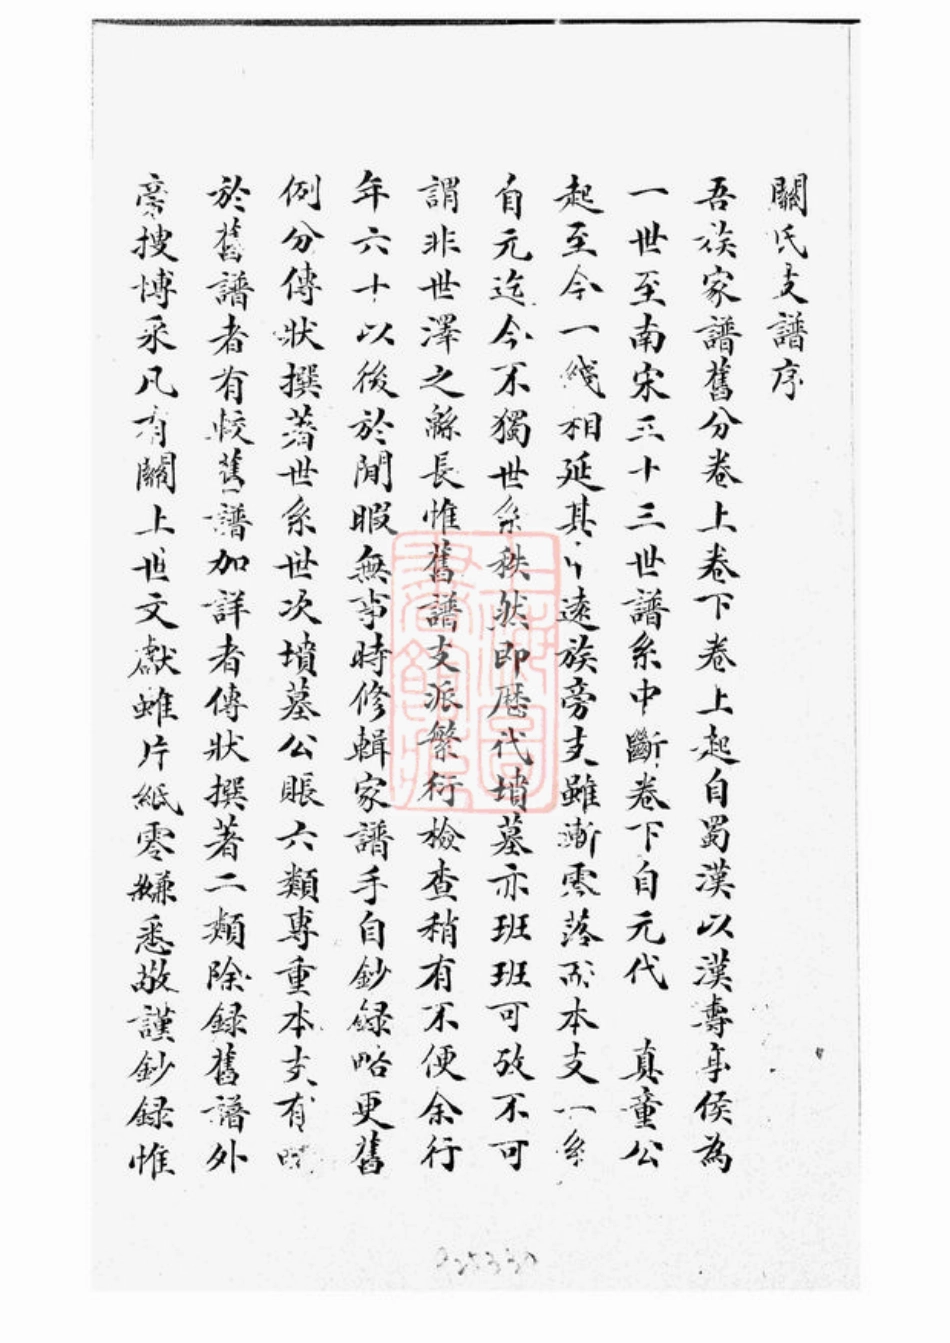 關氏支譜序
吾族家譜舊分卷上卷下卷上起自蜀漢以漢壽亭侯為
一世至南宋三十三世譜系中斷卷下自元代　真童公
起至今一綫相延其遠族旁支雖漸零落而本支一系
自元迄今不獨世系秩然即歷代墳墓亦班班可攷不可
謂非世澤之緜長惟舊譜支派繁衍檢查稍有不便余行
年六十以後於閒暇無事時修輯家譜手自鈔錄略更舊
例分傳狀撰著世系世次墳墓公賬六類專重本支有
於舊譜者有較舊譜加詳者傳狀撰著二類除錄舊譜外
旁搜博采凡有關上世文獻雖片紙零縑悉敬謹鈔錄惟
上海圖書館藏
925330